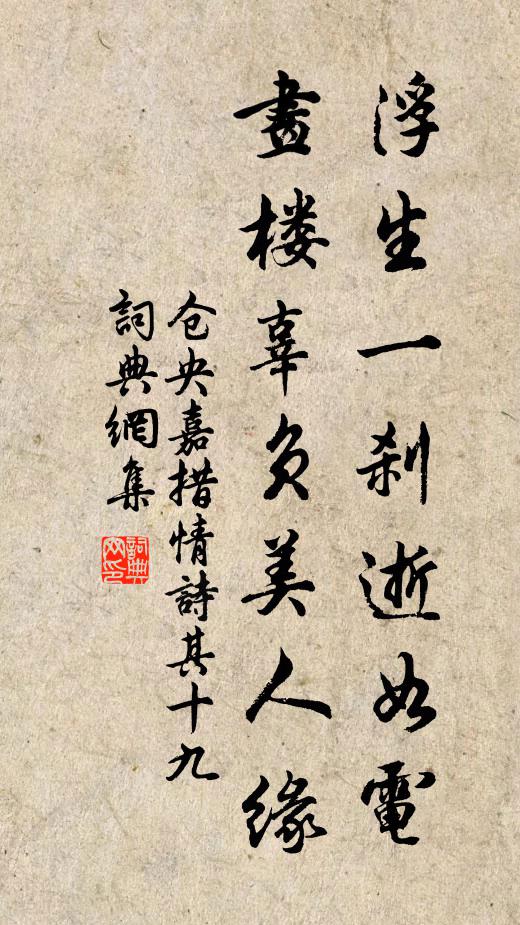 浮生一剎逝如電
畫楼辜负美人緣
仓央嘉措情詩其十九
詞典網集
詞典網印